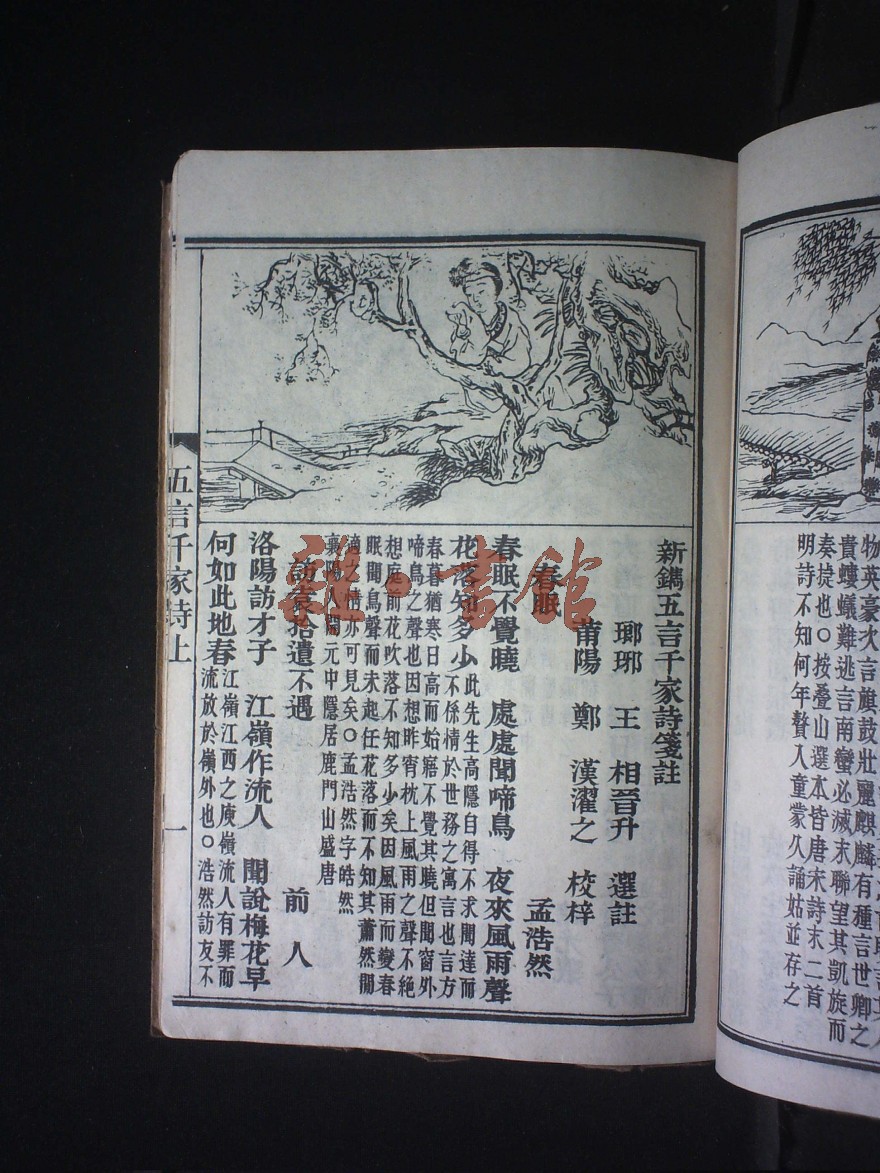 物英豪次言旗鼓壯麗麒麟有種言世卿之
貴螻蟻難逃言南蠻必滅末聯望其凱旋而
奏捷也○按疊山選本皆唐宋詩末二首
明詩不知何年贅入童蒙久誦姑並存之
新鐫五言千家詩箋註
瑯琊 王 相晉升 選註
莆陽 鄭 漢濯之 校梓
春眠 孟浩然
春眠不覺曉 處處聞啼鳥 夜來風雨聲
花落知多少 此先生高隱自得不求聞達而
不係情於世務之寓言也言方
春暮猶寒日高而始寤不覺其曉但聞窗外
啼鳥之聲也因想昨宵枕上風雨之聲不絕
想庭前花吹落不知多少矣因風雨而變春
眠聞鳥聲而未起任花落而不知其蕭然閒
適之情亦可見矣○孟浩然字皓然
襄陽人開元中隱居鹿門山盛唐
訪袁拾遺不遇 前人
洛陽訪才子 江嶺作流人 聞說梅花早
何如此地春 江嶺江西之庾嶺流人有罪而
流放於嶺外也○浩然訪友不
五言千家詩上 一
雜·書館